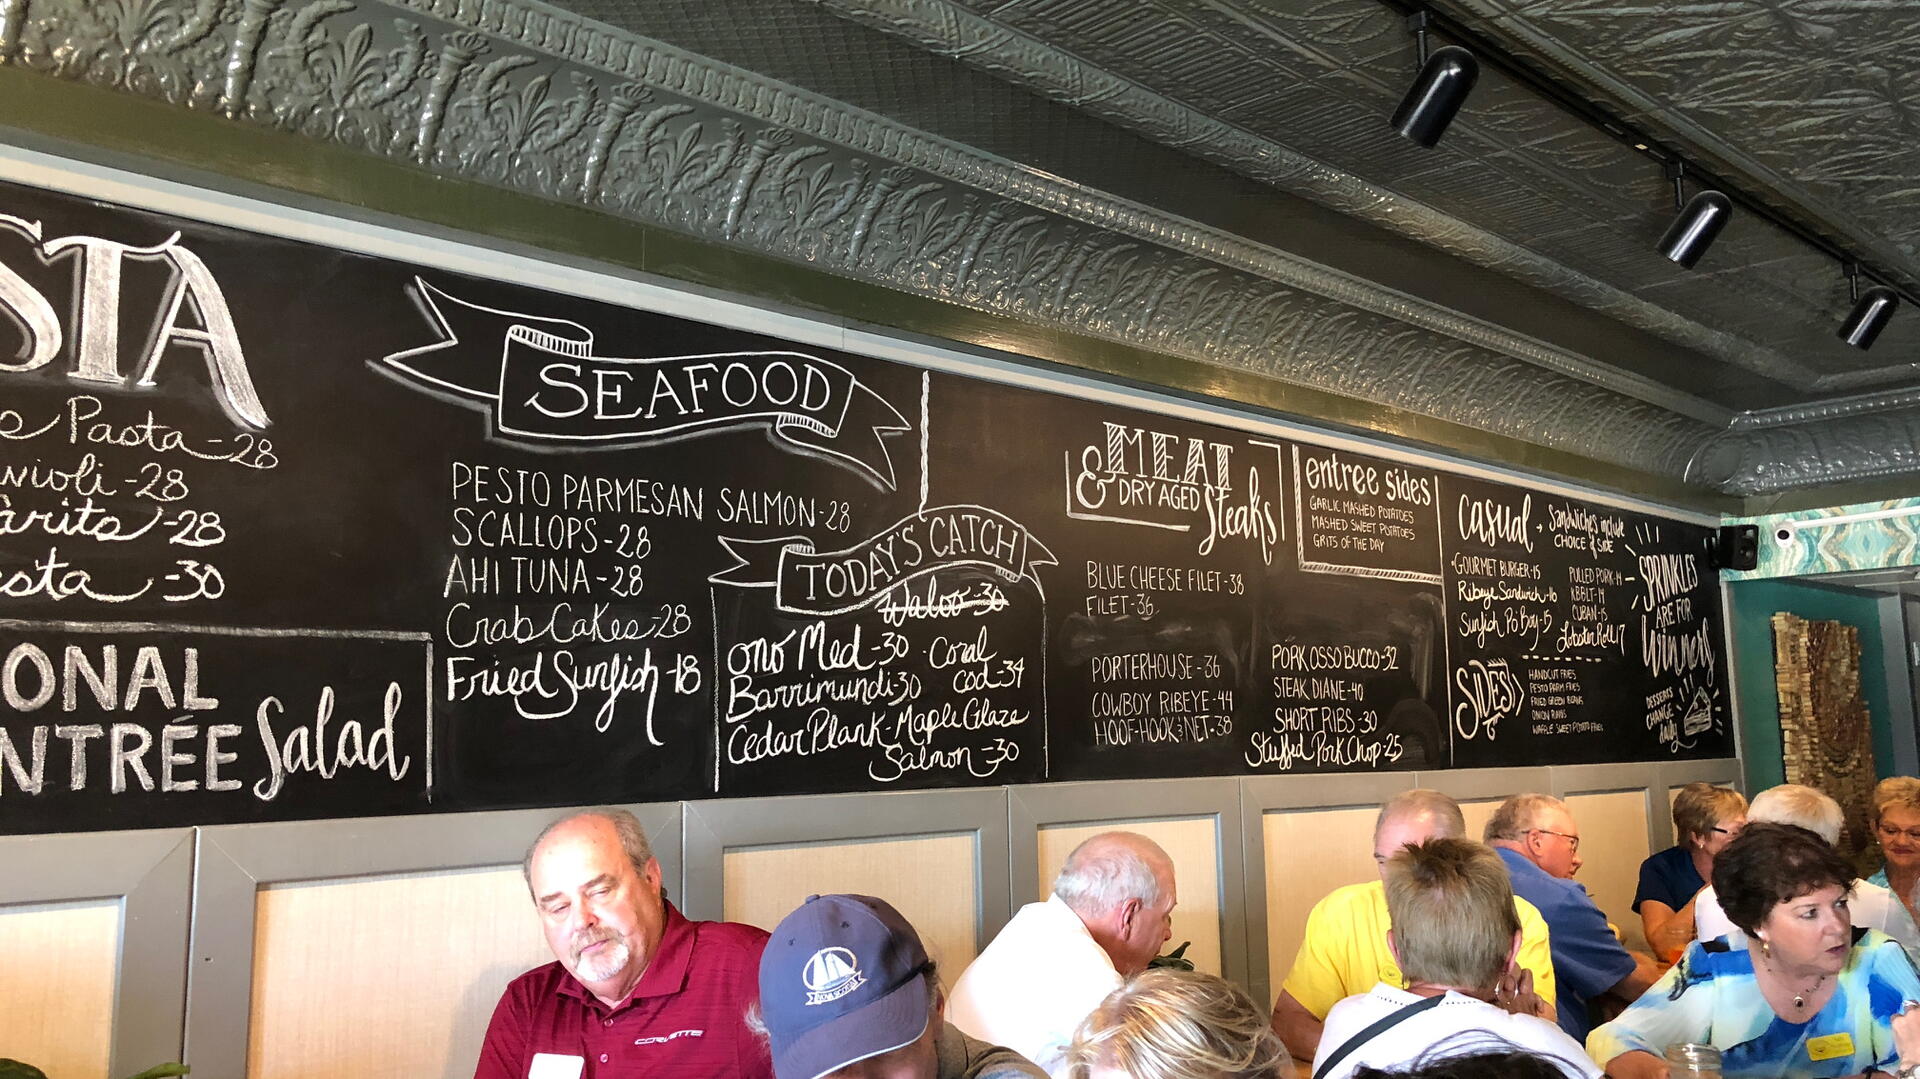 STA
Pasta-28
-28
-28
-30
ONAL
NTRÉE Salad
SEAFOOD
PESTO PARMESAN SALMON-28
SCALLOPS-28
AHI TUNA-28
Crab Cakes-28
Fried Sunfish-18
TODAY'S CATCH
Waloo-30
ono Med-30
Barrimundi-30
Coral
Cod-34
Cedar Plank-Maple Glaze
Salmon-30
MEAT
& DRY AGED
Steaks
BLUE CHEESE FILET-38
FILET-36
PORTERHOUSE-36
COWBOY RIBEYE-44
HOOF-HOOK&NET-38
PORK OSSO BUCCO-32
STEAK DIANE-40
SHORT RIBS-30
Stuffed Pork Chop-25
entree sides
GARLIC MASHED POTATOES
MASHED SWEET POTATOES
GRITS OF THE DAY
Casual
Sandwiches include
CHOICE of SIDE
GOURMET BURGER-15
Ribeye Sandwich-16
Sunfish Po Boy-15
PULLED PORK-14
KBBLT-14
CUBAN-15
Lobster Roll 17
SIDES
HANDCUT FRIES
PESTO PARM FRIES
FRIED GREEN BEANS
ONION RINGS
WAFFLE SWEET POTATO FRIES
SPRINKLES
ARE FOR
Winners
DESSERTS
CHANGE
daily
CORVETTE